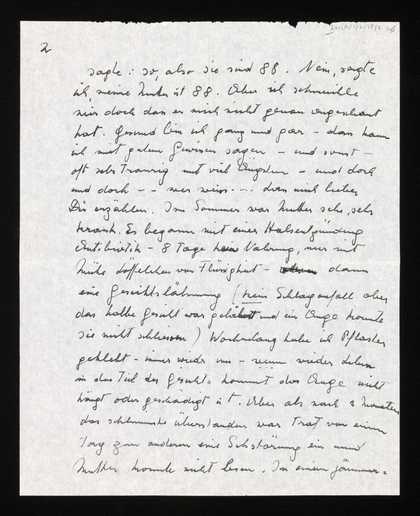 2
sagte: so, also sie sind 88. Nein, sagte
ich meine Mutter ist 88. Aber ich
mir doch das er mich nicht genau angeschaut
hat. Gesund bin ich ganz und gar – das kann
ich mit gutem Gewissen sagen – und sonst –
oft sehr traurig mit viel – und doch
und doch - - wer weiss . . . dass ich lieber
Dir erzählen. Im Sommer war Mutter sehr, sehr
krank. Es begann mit einer Halsentzündung
Antibiotik – 8 Tage keine Nahrung, nur mit
Mühe Löffelchen von Flüssigkeit – dann
eine Gesichtslähmung (kein Schlaganfall aber
das halbe Gesicht war gelähmt und ein Auge konnte
sie nicht schliessen) Wochenlang habe ich Pflaster
geklebt – immer wieder um – wenn wieder Leben
in das Teil des Gesichts kommt das Auge nicht
hängt oder geschädigt ist. Aber als nach 2 Monaten
das schlimmste überstanden war trat von einem
Tag zum anderen eine Sehstörung ein und
Mutter konnte nicht lesen. In einem jämmer=